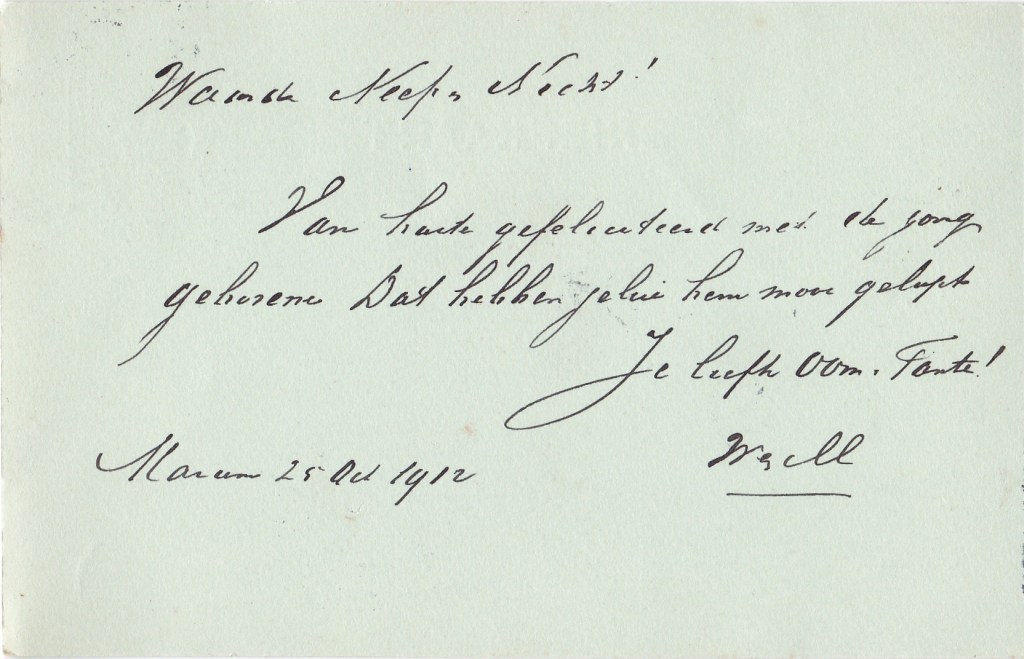 Waarde Neef en Nicht!
Van harte gefeliciteerd met de jong
geborene Dat hebben jelui hem mooi gelapt
Je liefh Oom en Tante!
W en M
Marum 25 Oct 1912